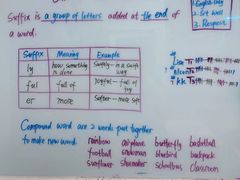 Suffix is a group of letters added at the end of
a word.
1. English Only
2. Sit Well
3. Respect
Suffix Meaning Example
ly how something is done Swiftly - in a swift way
ful full of Joyful - full of joy
er more Softer - more soft
Compound word are 2 words put together
to make new word. rainbow airplane butterfly basketball
football snowman bluebird backpack
sunflower shoemaker schoolbus classroom